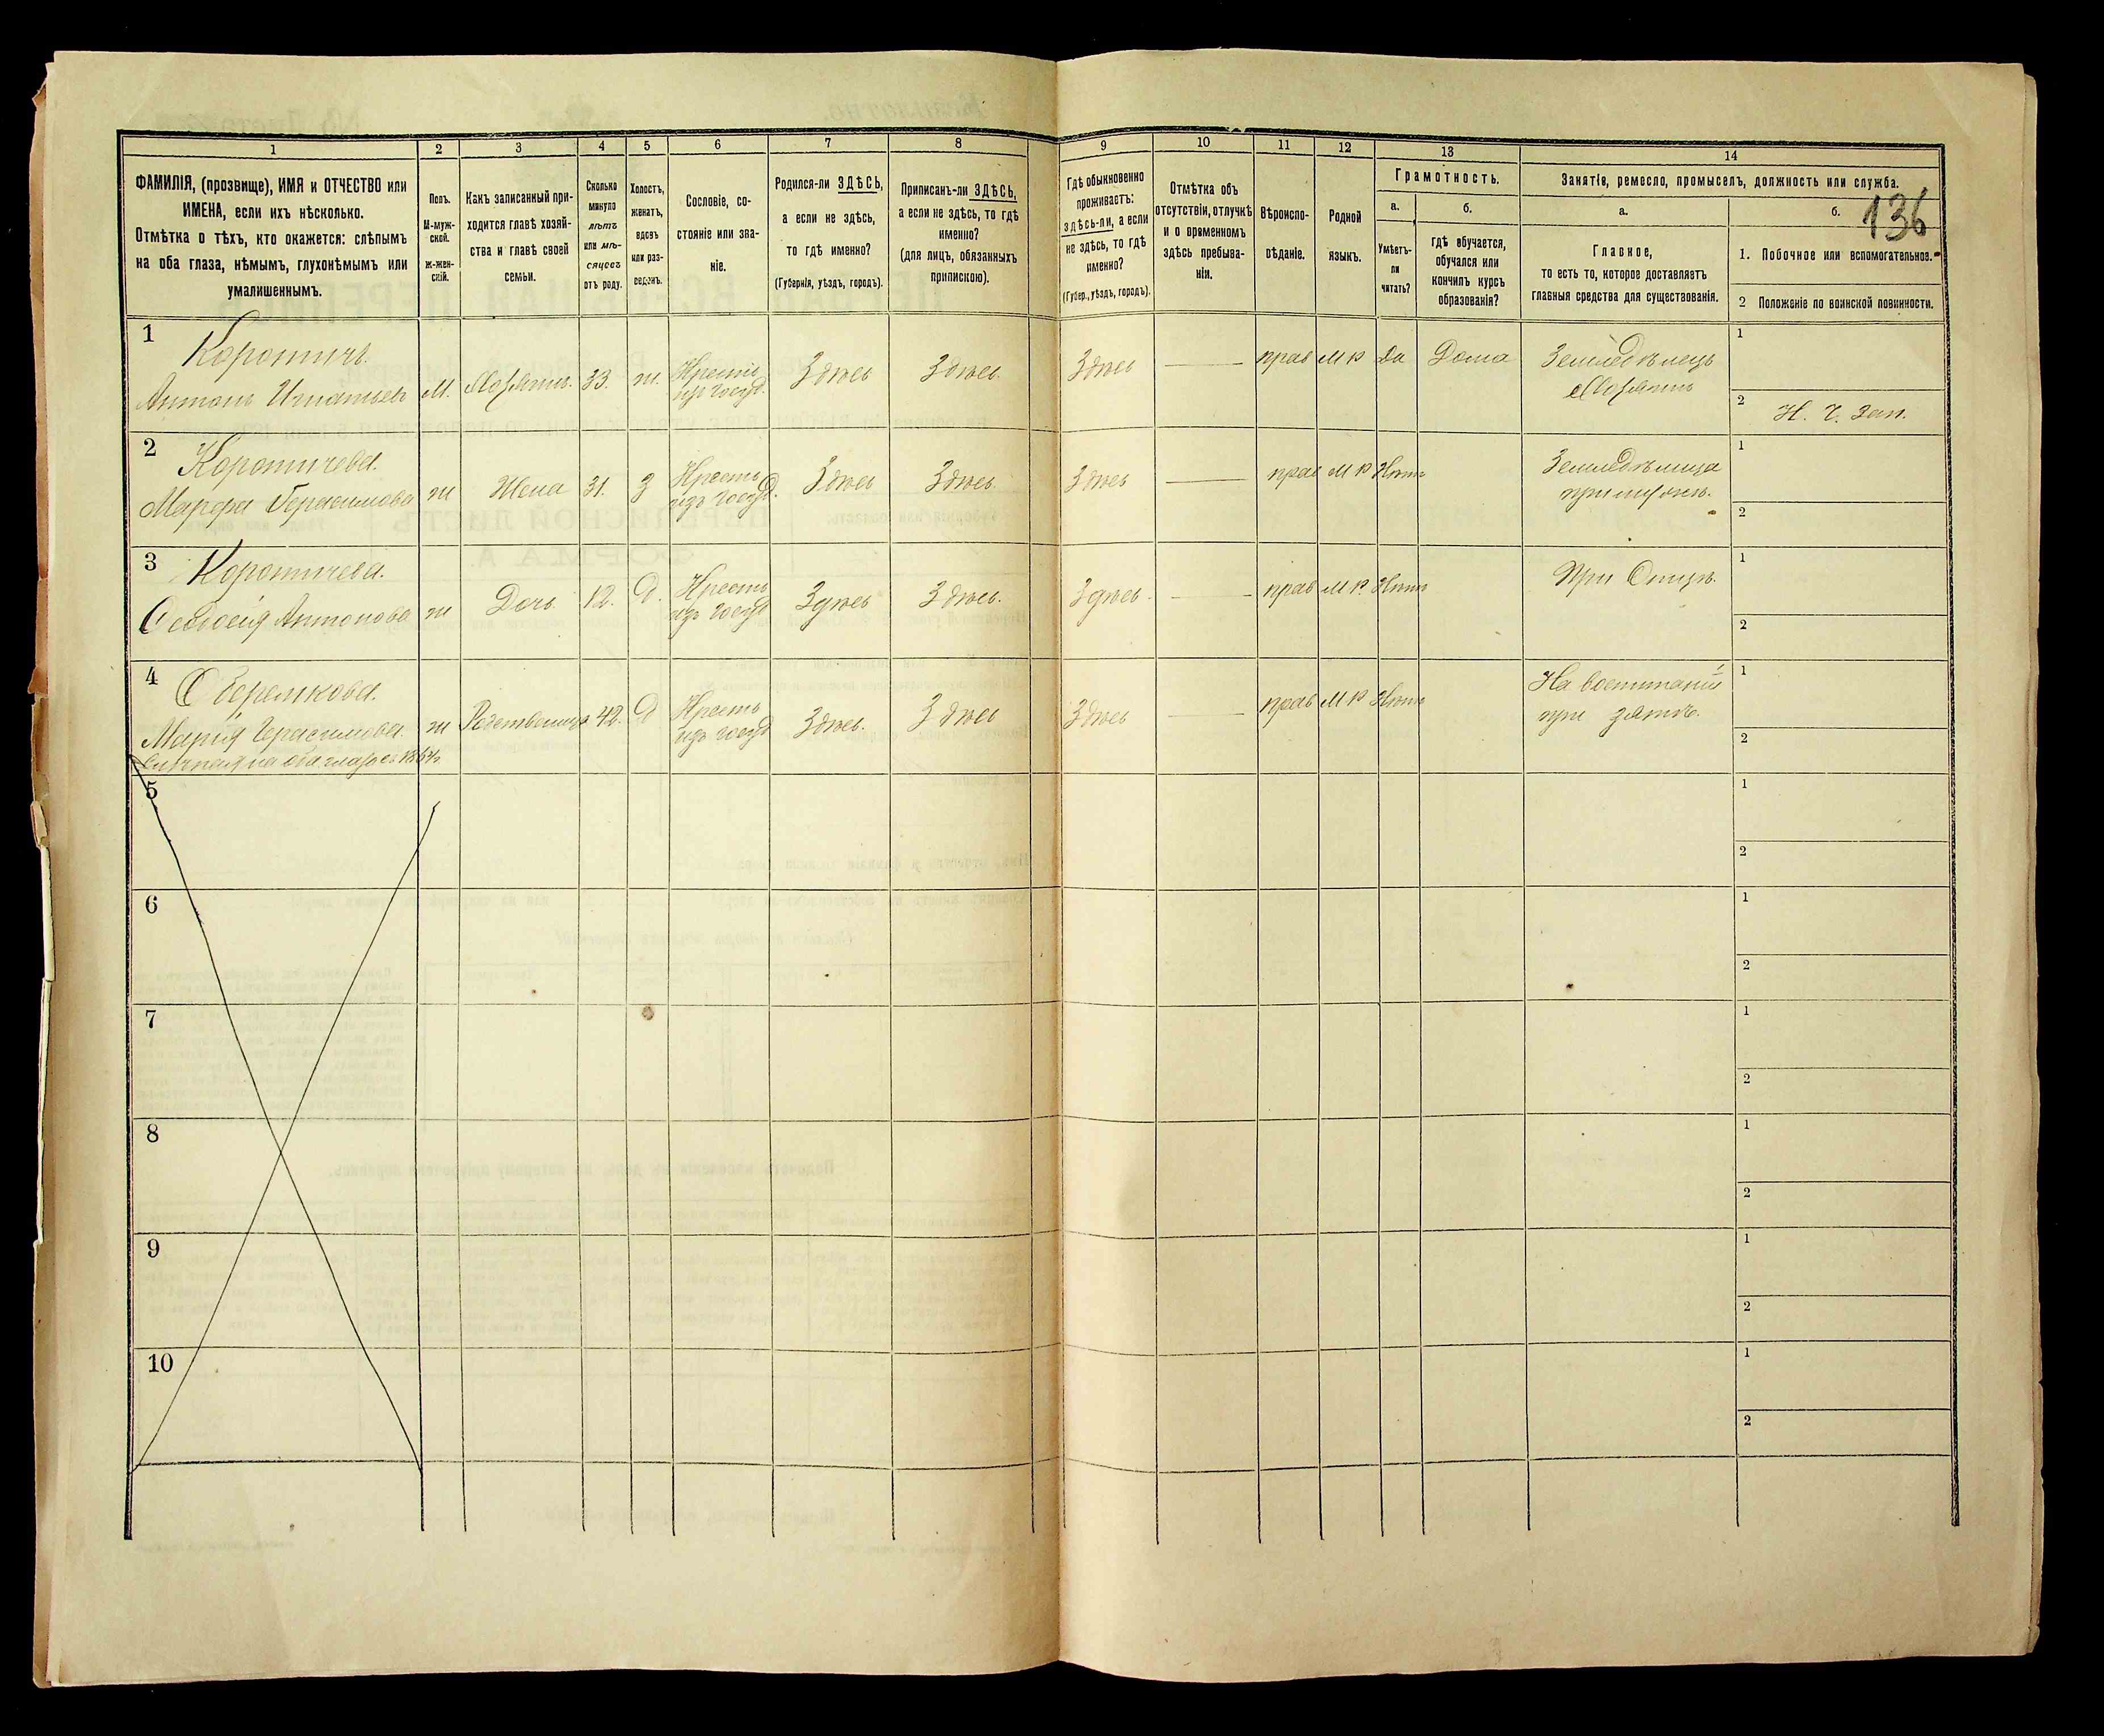 136
1 2 3 4 5 6 7 8 9 10 11 12 13 14
ФАМИЛІЯ, (прозвище), ИМЯ и ОТЧЕСТВО или
ИМЕНА, если ихъ нѣсколько.
Отмѣтка о тѣхъ, кто окажется: слѣпымъ
на оба глаза, нѣмымъ, глухонѣмымъ или
умалишеннымъ.
Полъ.
М-муж-
ской.
Ж-жен-
скій.
Какъ записанный при-
ходится главѣ хозяй-
ства и главѣ своей
семьи.
Сколько
минуло
лѣтъ
или мѣ-
сяцевъ
отъ роду.
Холостъ,
женатъ,
вдовъ
или раз-
веденъ.
Сословіе, со-
стояніе или зва-
ніе.
Родился-ли ЗДѢСЬ,
а если не здѣсь,
то гдѣ именно?
(Губернія, уѣздъ, городъ).
Приписанъ-ли ЗДѢСЬ,
а если не здѣсь, то гдѣ
именно?
(для лицъ, обязанныхъ
припискою).
Гдѣ обыкновенно
проживаетъ:
здѣсь-ли, а если
не здѣсь, то гдѣ
именно?
(Губер., уѣздъ, городъ).
Отмѣтка объ
отсутствіи, отлучкѣ
и о временномъ
здѣсь пребыва-
ніи.
Вѣроиспо-
вѣданіе.
Родной
языкъ.
Грамотность.
а.
Умѣетъ-
ли
читать?
б.
гдѣ обучается,
обучался или
кончилъ курсъ
образованія?
Занятіе, ремесло, промыселъ, должность или служба.
а.
Главное,
то есть то, которое доставляетъ
главныя средства для существованія.
б.
1. Побочное или вспомогательное.
2 Положеніе по воинской повинности.
1
Коротичъ.
Антонъ Игнатьевъ
М.
Хозяинъ.
33.
ж.
Крестъ
изъ Госуд.
Здѣсь
Здѣсь.
Здѣсь
прав
М Р
Да
Дома
Земледѣлецъ
Хозяинъ
1
2
Н. Ч. Зап.
2
Коротичева.
Марфа Герасимова
ж
Жена
31.
З
Крестъ
изъ Госуд.
Здѣсь
Здѣсь
Здѣсь
прав
М Р
Нѣтъ
Земледѣлица
при мужѣ.
1
2
3
Коротичева.
Феодосія Антонова
ж
Дочь
12.
Д.
Крестъ
изъ Госуд
Здѣсь
Здѣсь.
Здѣсь.
прав
М Р.
Нѣтъ
При Отцѣ.
1
2
4
Марія Герасимова.
слѣпая на оба глаза съ
ж
42.
Д
Крестъ
изъ Госуд
Здѣсь.
Здѣсь
Здѣсь
прав
М Р
Нѣтъ
На воспитаніи
при зятѣ.
1
2
5
1
2
6
1
2
7
1
2
8
1
2
9
1
2
10
1
2